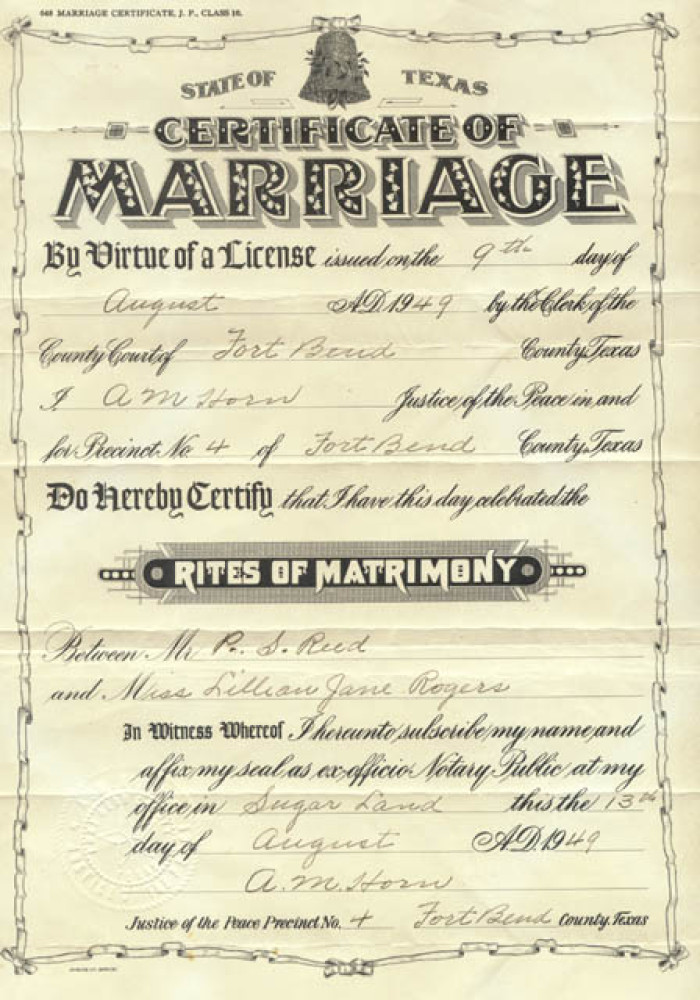 648 MARRIAGE CERTIFICATE, J. P., CLASS 10.
STATE OF TEXAS
CERTIFICATE OF
MARRIAGE
By Virtue of a License issued on the 9th day of
August A.D. 1949 by the Clerk of the
County Court of Fort Bend County, Texas
I A M Horn Justice of the Peace in and
for Precinct No. 4 of Fort Bend County, Texas
Do Hereby Certify that I have this day celebrated the
RITES OF MATRIMONY
Between Mr P. S. Reed
and Miss Lillian Jane Rogers
In Witness Whereof I hereunto subscribe my name and
affix my seal as ex-officio Notary Public at my
office in Sugar Land this the 13th
day of August A.D. 1949
A. M. Horn
Justice of the Peace Precinct No. 4 Fort Bend County, Texas